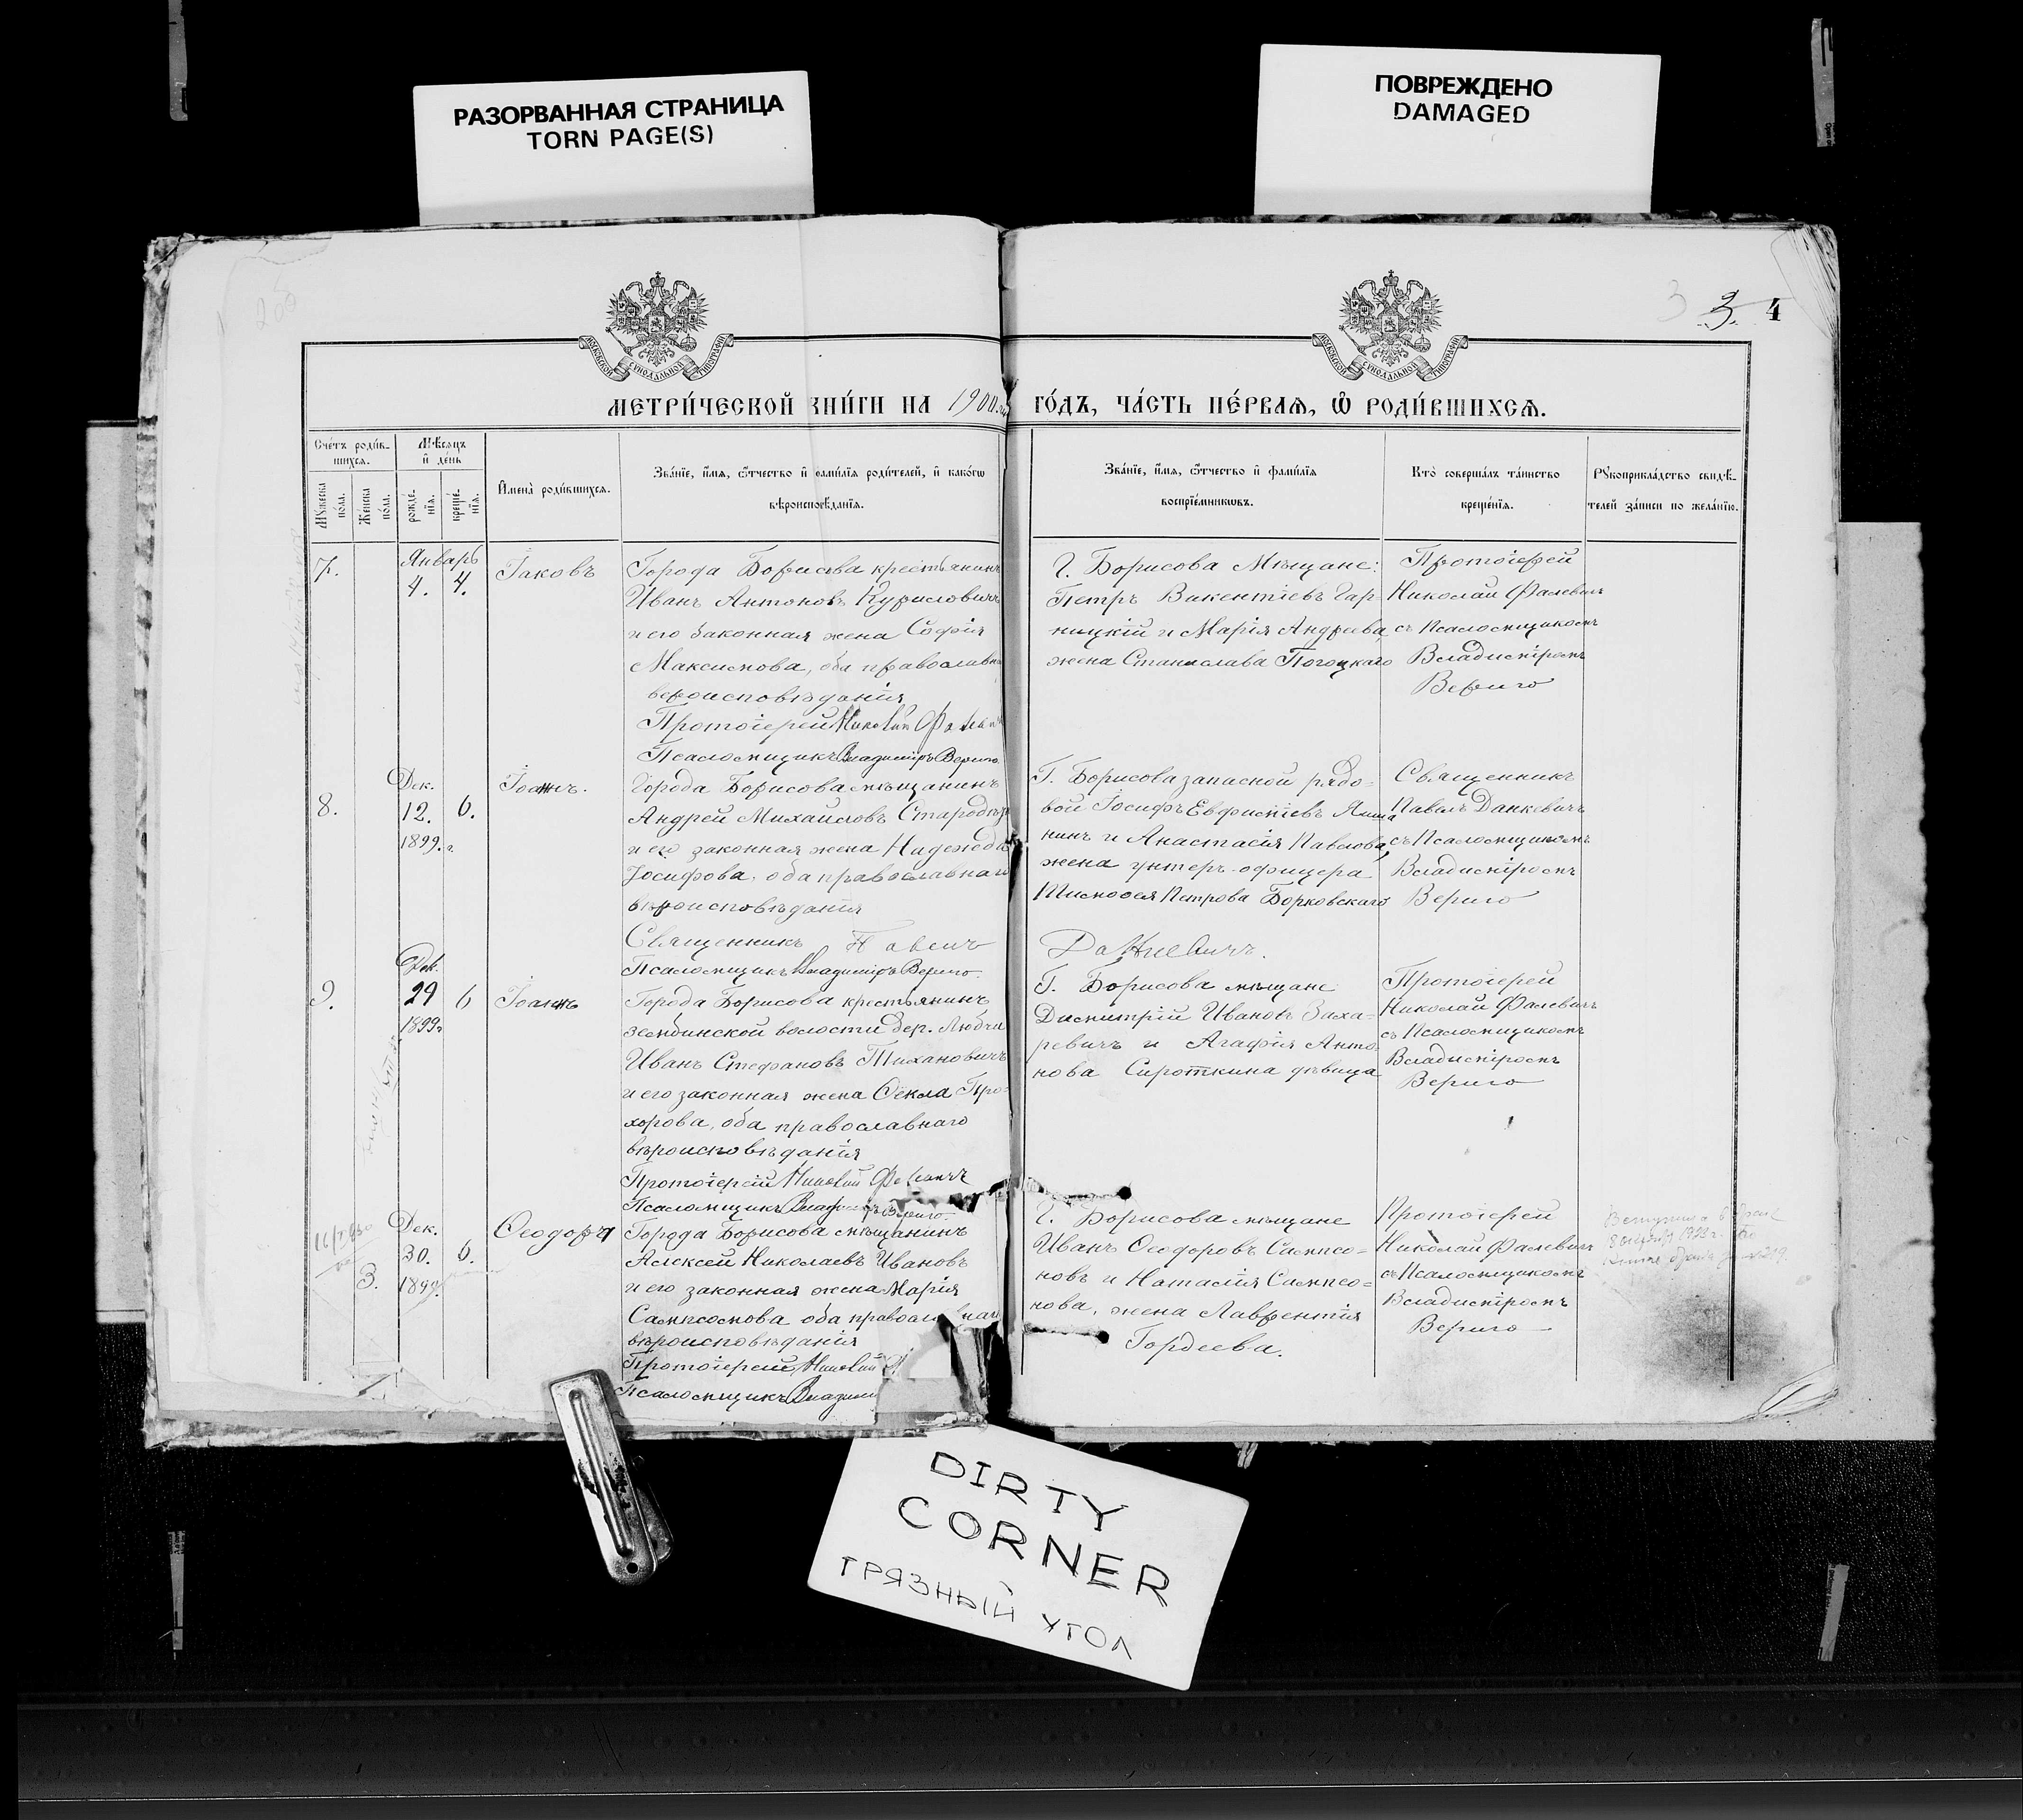 РАЗОРВАННАЯ СТРАНИЦА
TORN PAGE(S)
ПОВРЕЖДЕНО
DAMAGED
3
3.
4
МОСКОВСКОЙ СѴНОДАЛЬНОЙ ТИПОГРАФІИ
МОСКОВСКОЙ СѴНОДАЛЬНОЙ ТИПОГРАФІИ
МЕТРИ́ЧЕСКОЙ КНИ́ГИ НА 1900
ГО́ДЪ, ЧА́СТЬ ПЕ́РВАѦ, Ѽ РОДИ́ВШИХСѦ.
Сче́тъ роди́в-
шихсѧ.
Мѣ́сѧцъ
и҆ де́нь
Мꙋ́жеска
по́ла.
Же́нска
по́ла.
рожде́-
нїѧ.
креще́-
нїѧ.
И҆мена̀ роди́вшихсѧ.
Зва́нїе, и҆́мѧ, ѻ҆́тчество и҆ фами́лїѧ роди́телей, и҆ како́гѡ
вѣроисповѣ́данїѧ.
Зва́нїе, и҆́мѧ, ѻ҆́тчество и҆ фами́лїѧ
воспрїе́мникѡвъ.
Кто̀ соверша́лъ та́инство
креще́нїѧ.
Рꙋкоприкла́дство свидѣ́-
телей за́писи по жела́нїю.
7.
Январь
4. 4.
Іаковъ
Города Борисова крестьянинъ
Иванъ Антоновъ Куриловичъ
и его законная жена Софія
Максимова, оба православна
вероисповѣданія
Протоіерей Николай Фалевичъ
Псаломщикъ Владиміръ Вериго.
Г. Борисова Мѣщане:
Петръ Викентіевъ Гар-
ницкій и Марія Андреева,
жена Станислава Погоцкаго
Протоіерей
Николай Фалевичъ
съ Псаломщикомъ
Владиміромъ
Вериго
8.
Дек.
12. 6.
1899. г.
Іоаннъ.
Города Борисова мѣщанинъ
Андрей Михаиловъ
и его законная жена Надежда
Іосифова, оба православнаго
вѣроисповѣданія
Священникъ Павелъ
Данкевичъ.
Псаломщикъ Владиміръ Вериго.
Г. Борисова запасной рядо-
вой Іосифъ Евфиміевъ
нинъ и Анастасія Павлова,
жена унтеръ-офицера
Тимофея Петрова Борковскаго
Священникъ
Павелъ Данкевичъ
съ Псаломщикомъ
Владиміромъ
Вериго
9.
Дек.
29 6
1899г
Іоаннъ
Города Борисова крестьянинъ
Зембинской волости дер. Любчи
Иванъ Стефановъ Тихановичъ
и его законная жена Ѳекла Про-
хорова, оба православнаго
вѣроисповѣданія
Протоіерей Николай Фалевичъ
Псаломщикъ Владиміръ Вериго.
Г. Борисова мѣщане
Димитрій Ивановъ Заха-
ревичъ и Агафія Анто-
нова Сироткина дѣвица
Протоіерей
Николай Фалевичъ
съ Псаломщикомъ
Владиміромъ
Вериго
3.
Дек.
30. 6.
1899.
Ѳеодора
Города Борисова мѣщанинъ
Алексей Николаевъ Ивановъ
и его законная жена Марія
Сампсонова оба православнаг
вѣроисповѣданія
Протоіерей Николай
Псаломщикъ Владими
Г. Борисова мѣщане
Иванъ Ѳеодоровъ Сампсо-
новъ и Наталія Сампсо-
нова, жена Лаврентія
Гордеева.
Протоіерей
Николай Фалевичъ
съ Псаломщикомъ
Владиміромъ
Вериго
DIRTY
CORNER
ГРЯЗНЫЙ УГОЛ